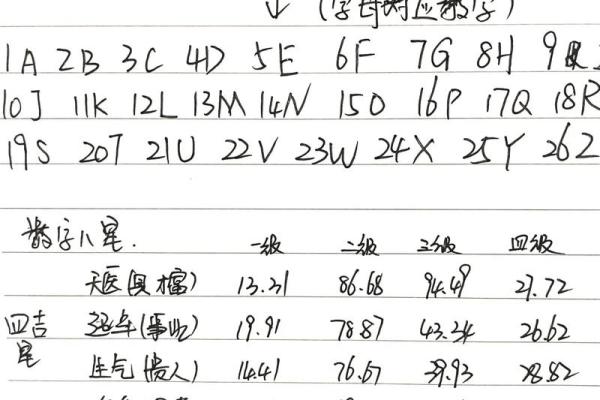 (字母对应数字)
1A 2B 3C 4D 5E 6F 7G 8H 9
10J 11K 12L 13M 14N 15O 16P 17Q 18R
19S 20T 21U 22V 23W 24X 25Y 26Z
数字八星. 一级 二级 三级 四级
天医(财富) 13.31 86.68 94.49 27.72
四吉星 延年(事业) 19.91 78.87 43.34 26.62
生气(贵人) 14.41 76.67 39.93 28.82